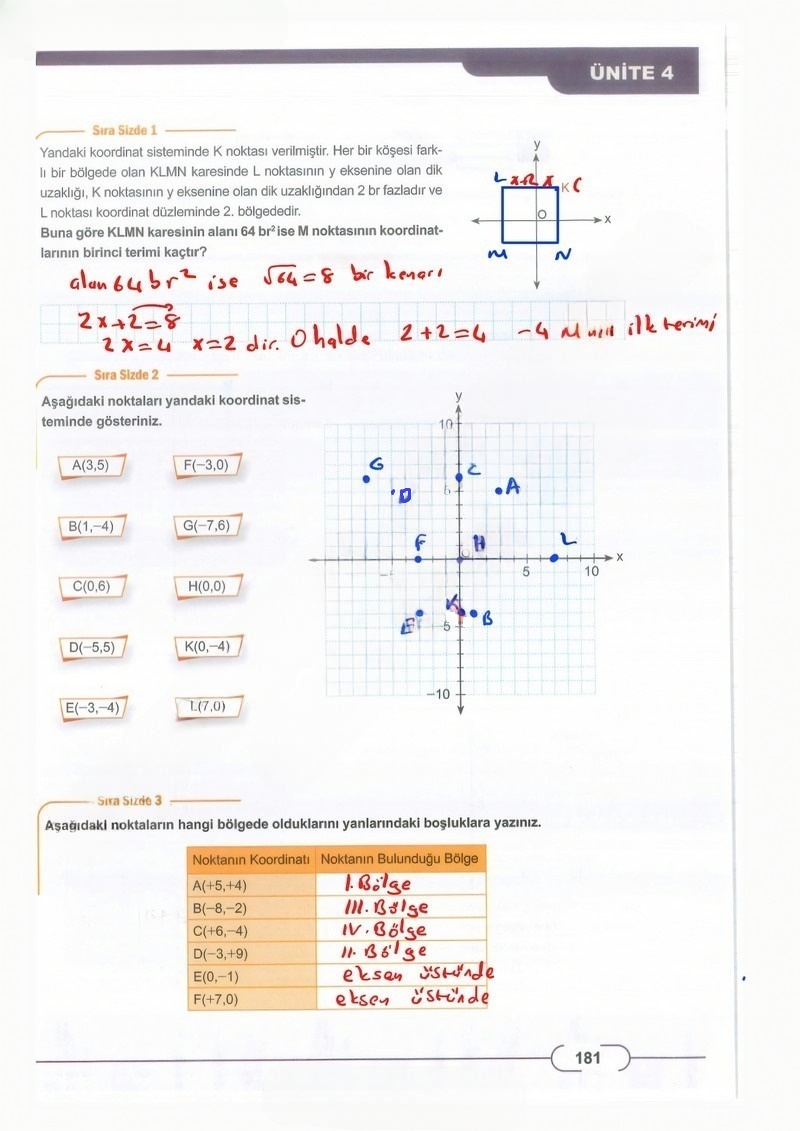 ÜNİTE 4
Sıra Sizde 1
Yandaki koordinat sisteminde K noktası verilmiştir. Her bir köşesi fark-
lı bir bölgede olan KLMN karesinde L noktasının y eksenine olan dik
uzaklığı, K noktasının y eksenine olan dik uzaklığından 2 br fazladır ve
L noktası koordinat düzleminde 2. bölgededir.
Buna göre KLMN karesinin alanı 64 br² ise M noktasının koordinat-
larının birinci terimi kaçtır?
y
L x+2 x K C
O
x
M N
alan 64 br² ise √64 = 8 bir kenarı
2x+2=8
2x=4 x=2 dir. O halde 2+2=4 -4 M nin ilk terimi
Sıra Sizde 2
Aşağıdaki noktaları yandaki koordinat sis-
teminde gösteriniz.
A(3,5) F(−3,0)
B(1,−4) G(−7,6)
C(0,6) H(0,0)
D(−5,5) K(0,−4)
E(−3,−4) L(7,0)
y
10
G C
D 5 A
F H L
x
5 10
K B
E 5
−10
Sıra Sizde 3
Aşağıdaki noktaların hangi bölgede olduklarını yanlarındaki boşluklara yazınız.
Noktanın Koordinatı Noktanın Bulunduğu Bölge
A(+5,+4) I. Bölge
B(−8,−2) III. Bölge
C(+6,−4) IV. Bölge
D(−3,+9) II. Bölge
E(0,−1) eksen üstünde
F(+7,0) eksen üstünde
181